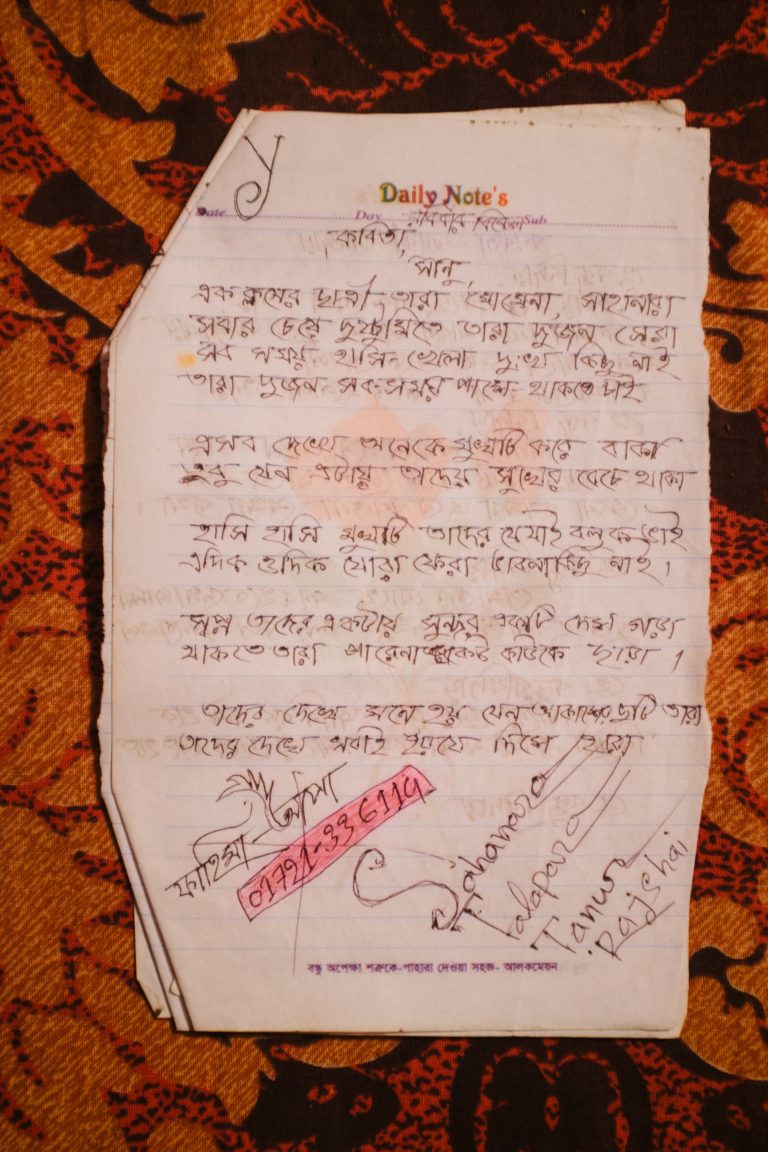 y
Daily Note's
Date Day রবিবার বিকেল Sub
কবিতা,
সানু,
এক ক্লাসের ছাত্রী তারা মোমেনা, সাহানারা
সবার চেয়ে দুষ্টুমিতে তারা দুজন সেরা
সব সময় হাসি-খেলা দুঃখ কিছু নাই
তারা দুজন সব সময় পাশে থাকতে চাই
এসব দেখে অনেকে মুখটি করে বাকা
তবু যেন এটায় তাদের সুখের বেচে থাকা
হাসি হাসি মুখটি তাদের যে যাই বলুক ভাই
এদিক ওদিক ঘোরা ফেরা ভাবনা কিছু নাই।
স্বপ্ন তাদের একটায় সুন্দর একটি দেশ গড়া
থাকতে তারা পারেনা কেউ কাউকে ছাড়া।
তাদের দেখে মনে হয় যেন আকাশের দুটি তারা
তাদের দেখে সবাই হৃদয়ে দিশে হারা
আপা
ফাহিমা
01721-336114
Sahanara
Talapara
Tanur
Rajshai
বন্ধু অপেক্ষা শত্রুকে-পাহারা দেওয়া সহজ- আলকমেয়ন